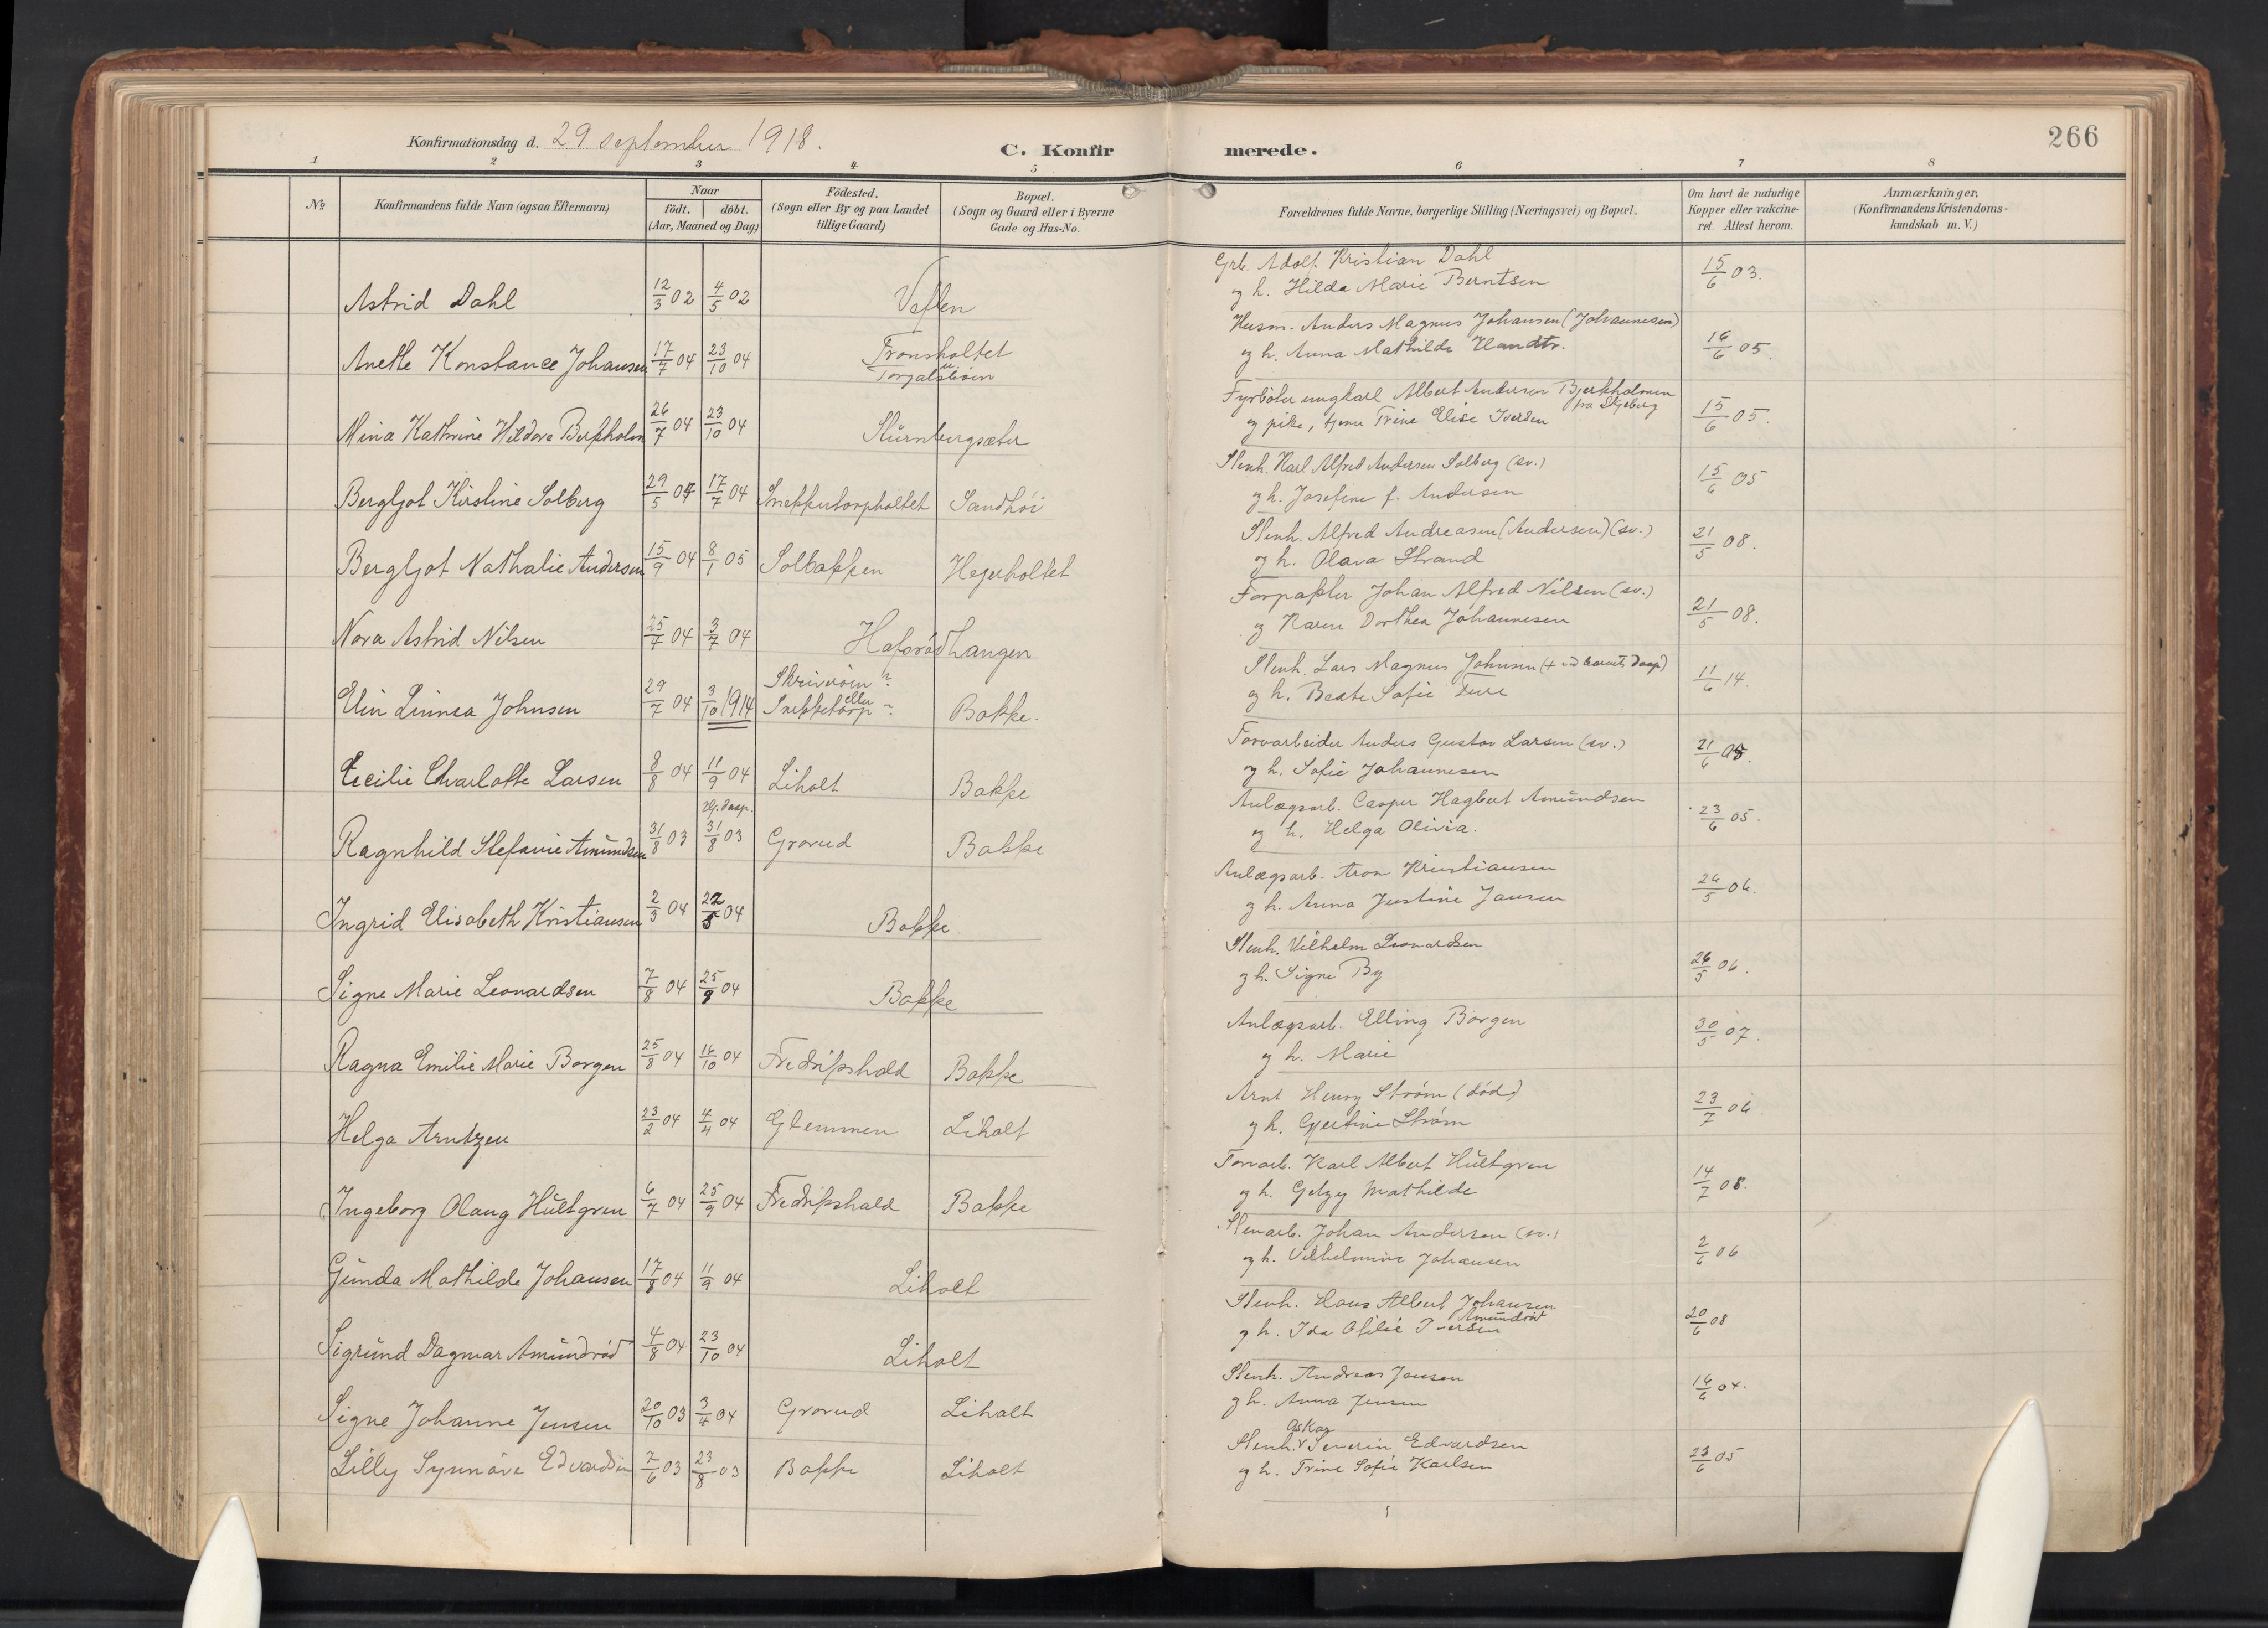 266
Konfirmationsdag d. 29 september 1918.
C. Konfirmerede.
1 2 3 4 5 6 7 8
No
Konfirmandens fulde Navn (ogsaa Efternavn)
Naar
födt. döbt.
(Aar, Maaned og Dag)
Födested.
(Sogn eller By og paa Landet
tillige Gaard)
Bopæl.
(Sogn og Gaard eller i Byerne
Gade og Hus-No.
Forældrenes fulde Navne, borgerlige Stilling (Næringsvei) og Bopæl.
Om havt de naturlige
Kopper eller vakcine-
ret. Attest herom.
Anmærkninger.
(Konfirmandens Kristendoms-
kundskab m. V.)
Astrid Dahl 12/3 02 4/5 02 Veften
Grb. Adolf Kristian Dahl
og h. Hilda Marie Berntsen 15/6 03.
Anette Konstance Johansen 17/7 04 23/10 04 Tronsholtet
u. Torgalsbøen
Husm. Anders Magnus Johansen (Johannesen)
og h. Anna Mathilde 16/6 05.
Mina Kathrine Heldora Berkholm 26/7 04 23/10 04
Fyrbøter ungkarl Albert Andersen Bjerkholmen
fra Skjeberg
og pike, tjener Trine Elise Iversen 15/6 05.
Bergljot Kirstine Solberg 29/5 04 17/7 04 Snekkertorpholtet Sandhøi
Stenh. Karl Alfred Andersen Solberg (sv.)
og h. Josefine f. Andersen 15/6 05
Bergljot Nathalie Andersen 15/9 04 8/1 05 Solbakken Hejerholtet
Stenh. Alfred Andreasen (Andersen) (sv.)
og h. Olava Strand 21/5 08.
Nora Astrid Nilsen 25/4 04 3/7 04 Hafsrødhangen
Forpakter Johan Alfred Nilsen (sv.)
og Karen Dorthea Johannesen 21/5 08.
Elin Linnea Johnsen 29/7 04 3/10 1914 Skriverøen ?
eller
Snekketorp ? Bakke.
Stenh. Lars Magnus Johnsen (+ ved barnets daap)
og h. Beate Sofie Ture 11/6 14.
Cecilie Charlotte Larsen 8/8 04 11/9 04 Liholt Bakke
Torvarbeider Anders Gustav Larsen (sv.)
og h. Sofie Johannesen 21/6 05.
Ragnhild Stefanie Amundsen 31/8 03 31/8 03 Grorud Bakke
Anlægsarb. Casper Hagbert Amundsen
og h. Helga Olivia. 23/6 05.
Ingrid Elisabeth Kristiansen 2/3 04 22/5 04 Bakke
Anlægsarb. Aron Kristiansen
og h. Anna Justine Jansen 26/5 06.
Signe Marie Leonardsen 7/8 04 25/9 04 Bakke
Stenh. Vilhelm Leonardsen
og h. Signe By 26/5 06.
Ragna Emilie Marie Borgen 25/8 04 16/10 04 Fredrikshald Bakke
Anlægsarb. Elling Borgen
og h. Marie 30/5 07.
Helga Arntzen 23/2 04 4/4 04 Glemmen Liholt
Arnt Henry Strøm (død)
og h. Gjertine Strøm 23/7 06
Ingeborg Olaug Hultgren 6/7 04 25/9 04 Fredrikshald Bakke
Torvarb. Karl Albert Hultgren
og h. Getzy Mathilde 14/7 08.
Gunda Mathilde Johansen 17/8 04 11/9 04 Liholt
Stenarb. Johan Andersen (sv.)
og h. Vilhelmine Johansen 2/6 06
Sigrund Dagmar Amundrød 4/8 04 23/10 04 Liholt
Stenh. Hans Albert Johansen
Amundrød
og h. Ida Otilie Iversen 20/6 08
Signe Johanne Jensen 20/10 03 3/4 04 Grorud Liholt
Stenh. Andreas Jensen
og h. Anna Jensen 16/6 04.
Lilly Synnøve Edvardsen 7/6 03 23/8 03 Bakke Liholt
Oskar
Stenh. Severin Edvardsen
og h. Trine Sofie Karlsen 23/6 05